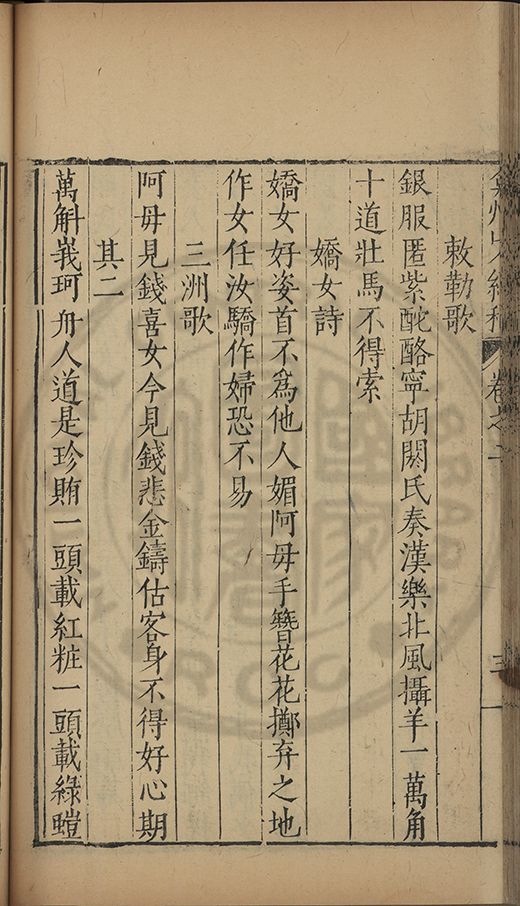 敕勒歌
銀服匿紫酡酪寧胡閼氏奏漢樂北風攝羊一萬角
十道壯馬不得索
嬌女詩
嬌女好姿首不爲他人媚阿母手簪花花擲弃之地
作女任汝驕作婦恐不易
三洲歌
阿母見錢喜女今見錢悲金鑄估客身不得好心期
其二
萬斛峩珂舟人道是珍賄一頭載紅粧一頭載綠螘